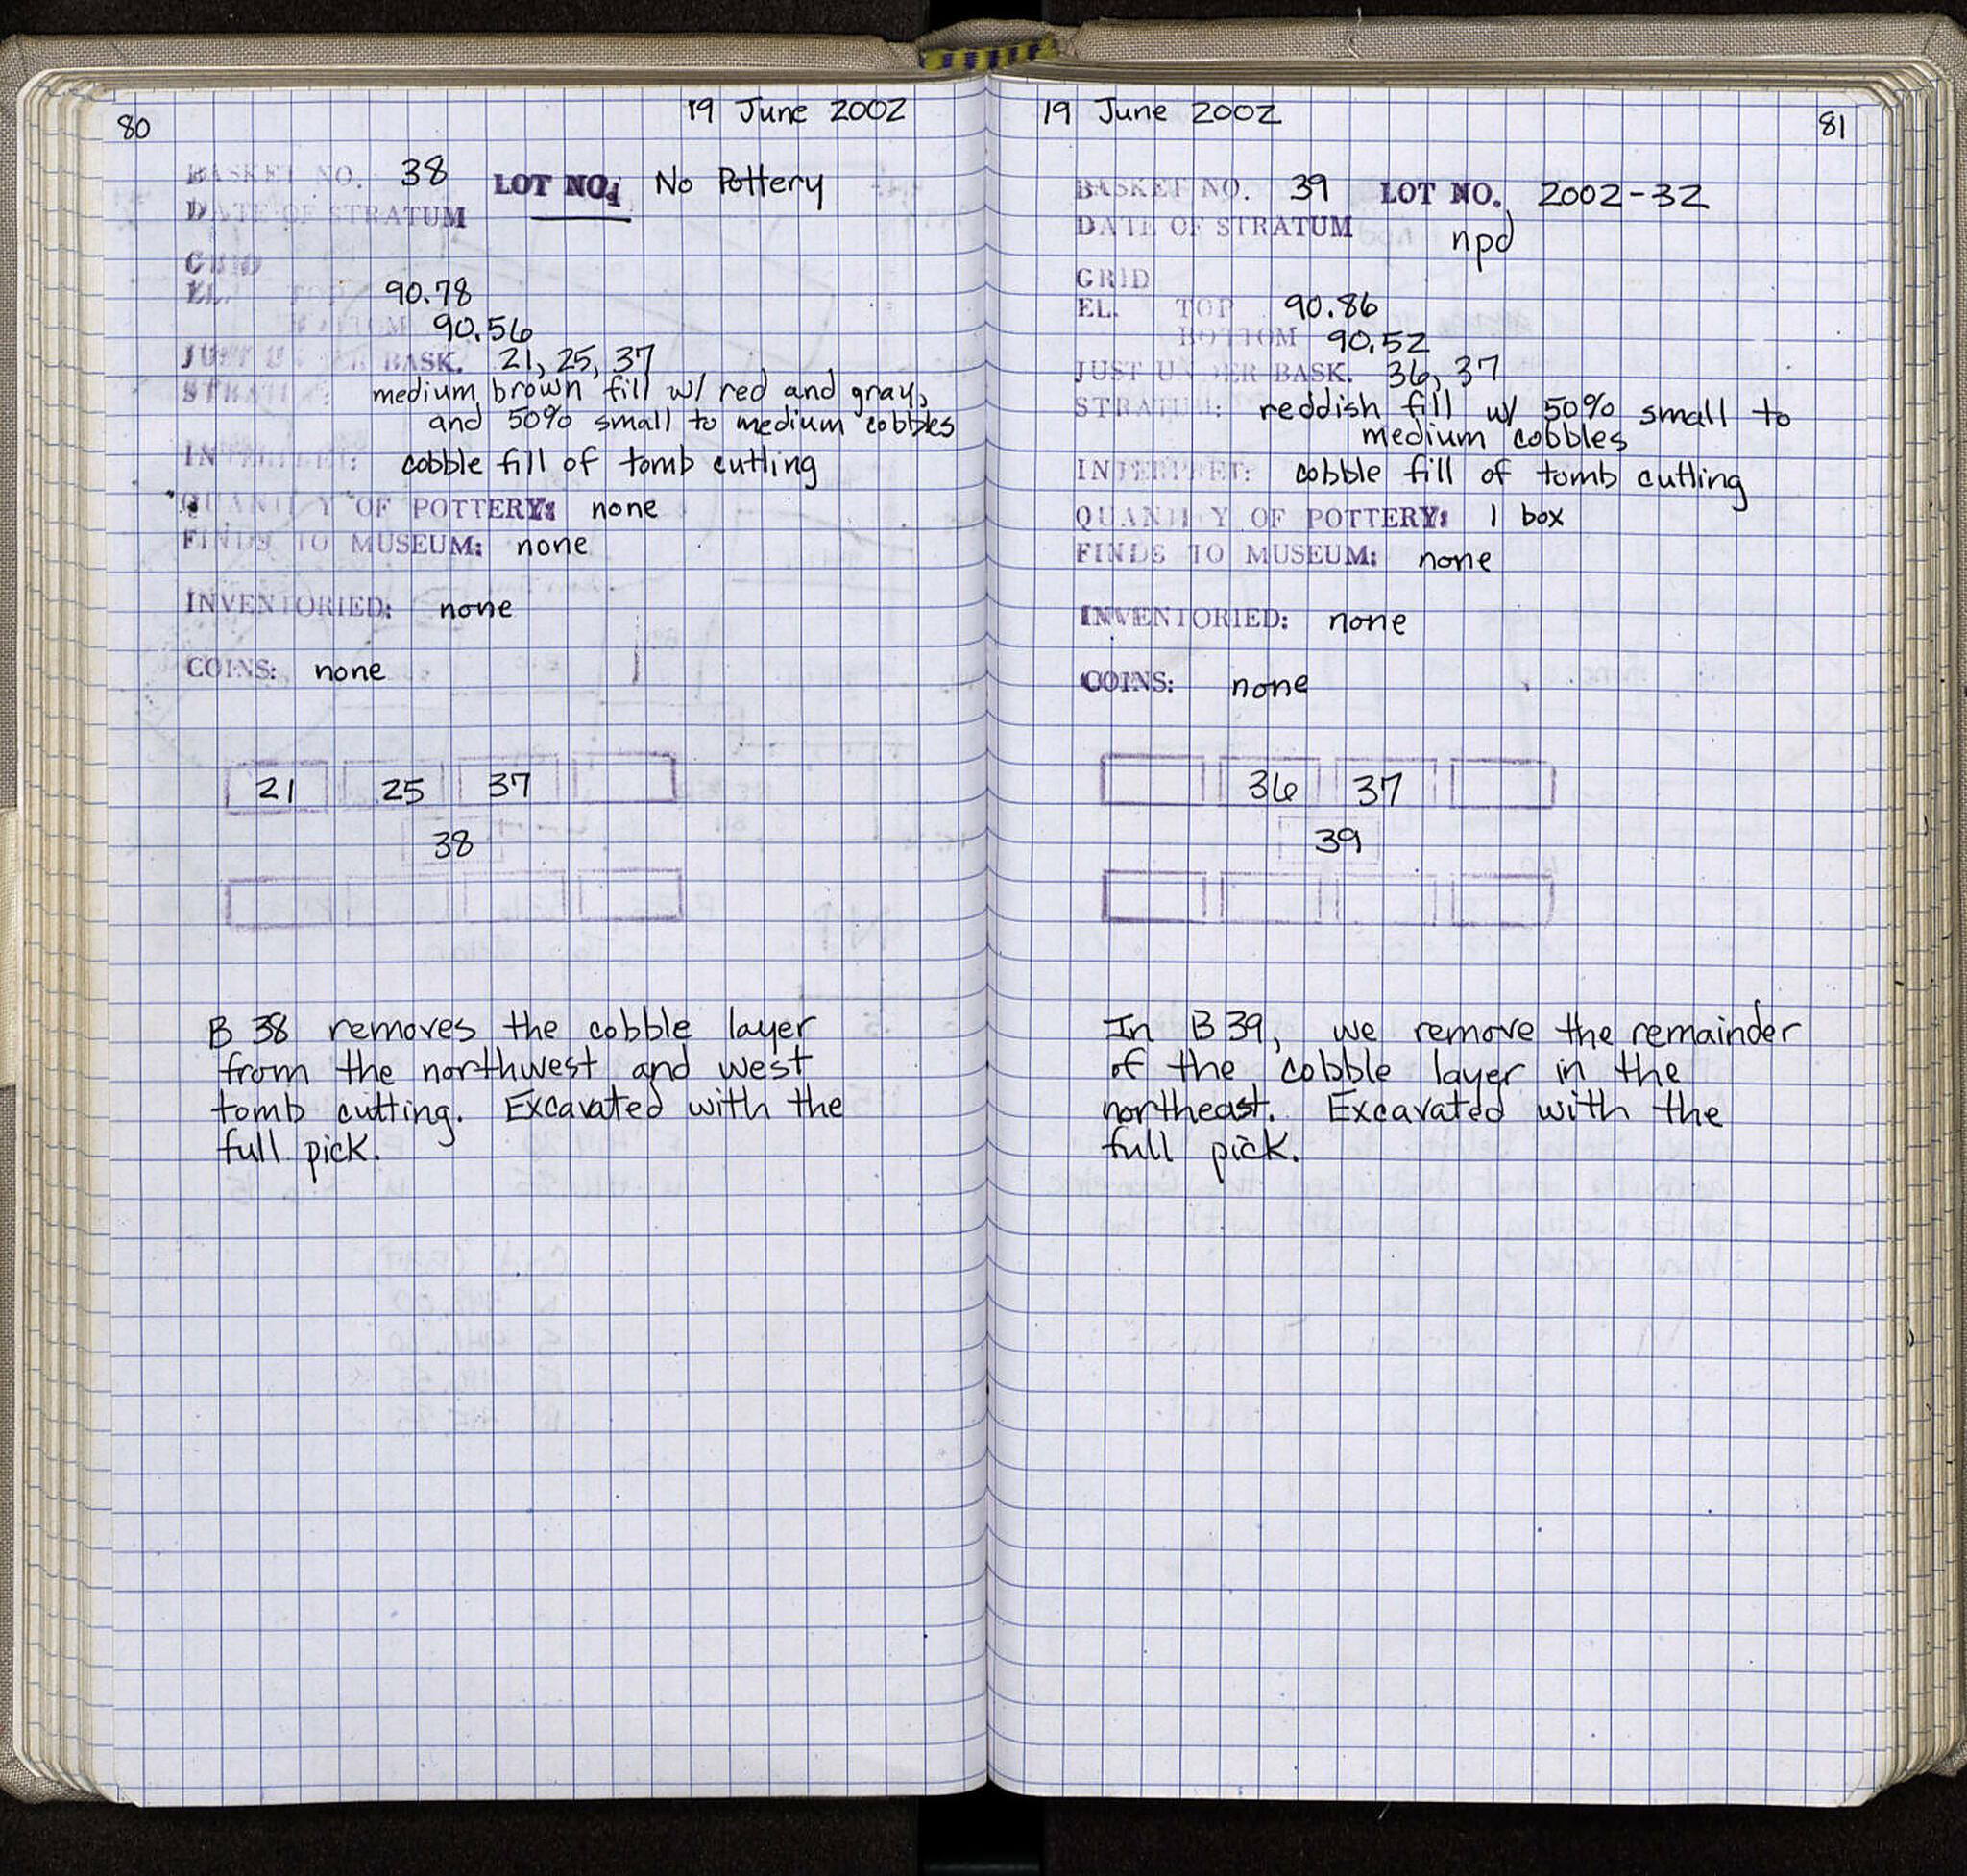 80
19 June 2002
BASKET NO. 38 LOT NO. No Pottery
DATE OF STRATUM
GRID
EL. TOP 90.78
BOTTOM 90.56
JUST UNDER BASK. 21, 25, 37
STRATUM: medium brown fill w/ red and gray,
and 50% small to medium cobbles
INTERPRET: cobble fill of tomb cutting
QUANTITY OF POTTERY: none
FINDS TO MUSEUM: none
INVENTORIED: none
COINS: none
21 25 37
38
B 38 removes the cobble layer
from the northwest and west
tomb cutting. Excavated with the
full pick.
19 June 2002
81
BASKET NO. 39 LOT NO. 2002-32
DATE OF STRATUM npd
GRID
EL. TOP 90.86
BOTTOM 90.52
JUST UNDER BASK. 36, 37
STRATUM: reddish fill w/ 50% small to
medium cobbles
INTERPRET: cobble fill of tomb cutting
QUANTITY OF POTTERY: 1 box
FINDS TO MUSEUM: none
INVENTORIED: none
COINS: none
36 37
39
In B 39, we remove the remainder
of the cobble layer in the
northeast. Excavated with the
full pick.